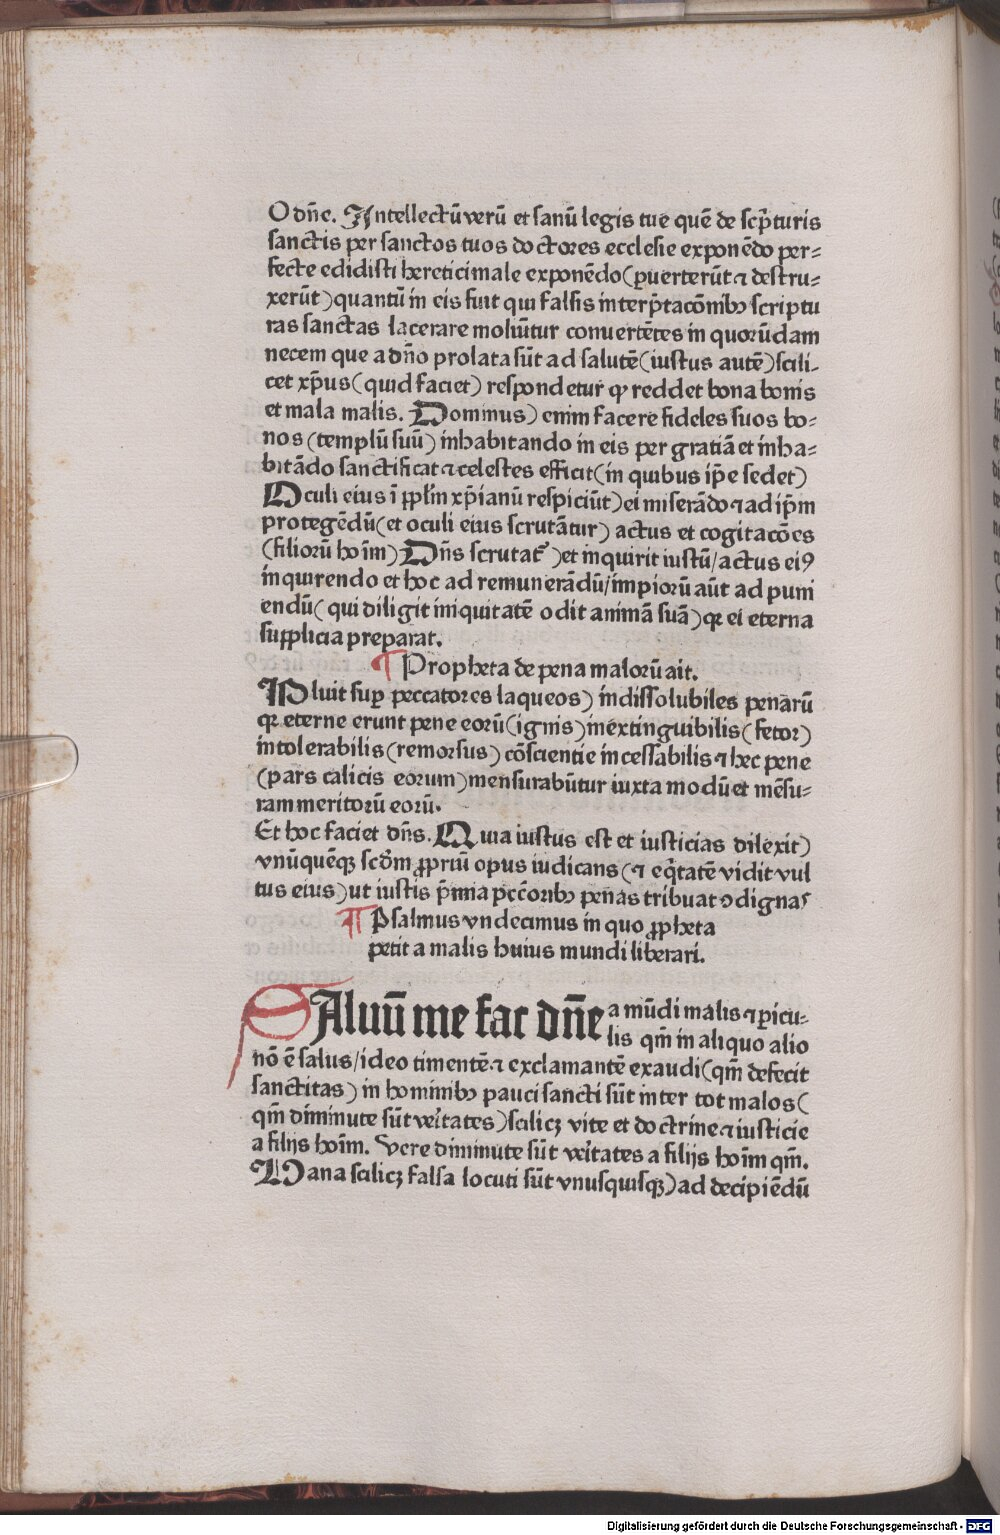 O dn̄e. Intellectū verū et sanū legis tue quē de scp̄turis
sanctis per sanctos tuos doctores ecclesie exponēdo per⸗
fecte edidisti heretici male exponēdo (ꝑuerterūt ⁊ destru⸗
xerūt) quantū in eis fuit qui falsis interp̄tacōnibꝫ scriptu
ras sanctas lacerare moliūtur conuertētes in quorūdam
necem que a dn̄o prolata sūt ad salutē (iustus autē) scili⸗
cet xp̄us (quid faciet) respondetur ꝙ reddet bona bonis
et mala malis. Dominus) enim facere fideles suos bo⸗
nos (templū suū) inhabitando in eis per gratiā et inha⸗
bitādo sanctificat ⁊ celestes efficit (in quibus ip̄e sedet)
Oculi eius ī ꝓplm̄ xp̄ianū respiciūt) ei miserādo ⁊ ad ip̄m
protegēdū (et oculi eius scrutātur) actus et cogitacōes
(filiorū hoīm) Dn̄s scrutat᷑) et inquirit iustū / actus eiꝰ
inquirendo et hoc ad remunerādū / impiorū aūt ad puni
endū (qui diligit iniquitatē odit animā suā) qꝛ ei eterna
supplicia preparat.
¶ Propheta de pena malorū ait.
Pluit suꝑ peccatores laqueos) indissolubiles penarū
qꝛ eterne erunt pene eorū (ignis) inextinguibilis (fetor)
intolerabilis (remorsus) cōscientie incessabilis ⁊ hec pene
(pars calicis eorum) mensurabūtur iuxta modū et mēsu⸗
ram meritorū eorū.
Et hoc faciet dn̄s. Quia iustus est et iusticias dilexit)
vnūquēqꝫ scd̄m ꝓpriū opus iudicans (⁊ eq̄tatē vidit vul
tus eius) ut iustis p̄mia pcc̄oribꝫ penas tribuat ꝯdignas
¶ Psalmus vndecimus in quo ꝓpheta
petit a malis huius mundi liberari.
SAluū me fac dn̄e a mūdi malis ⁊ ꝑicu⸗
lis qm̄ in aliquo alio
nō ē salus / ideo timentē ⁊ exclamantē exaudi (qm̄ defecit
sanctitas) in hominibꝫ pauci sancti sūt inter tot malos (
qm̄ diminute sūt ve᷑itates) scilicꝫ vite et doctrine ⁊ iusticie
a filijs hoīm. Vere diminute sūt ve᷑itates a filijs hoīm qm̄.
Vana scilicꝫ falsa locuti sūt vnusquisqꝫ) ad decipiēdū
Digitalisierung gefördert durch die Deutsche Forschungsgemeinschaft - DFG